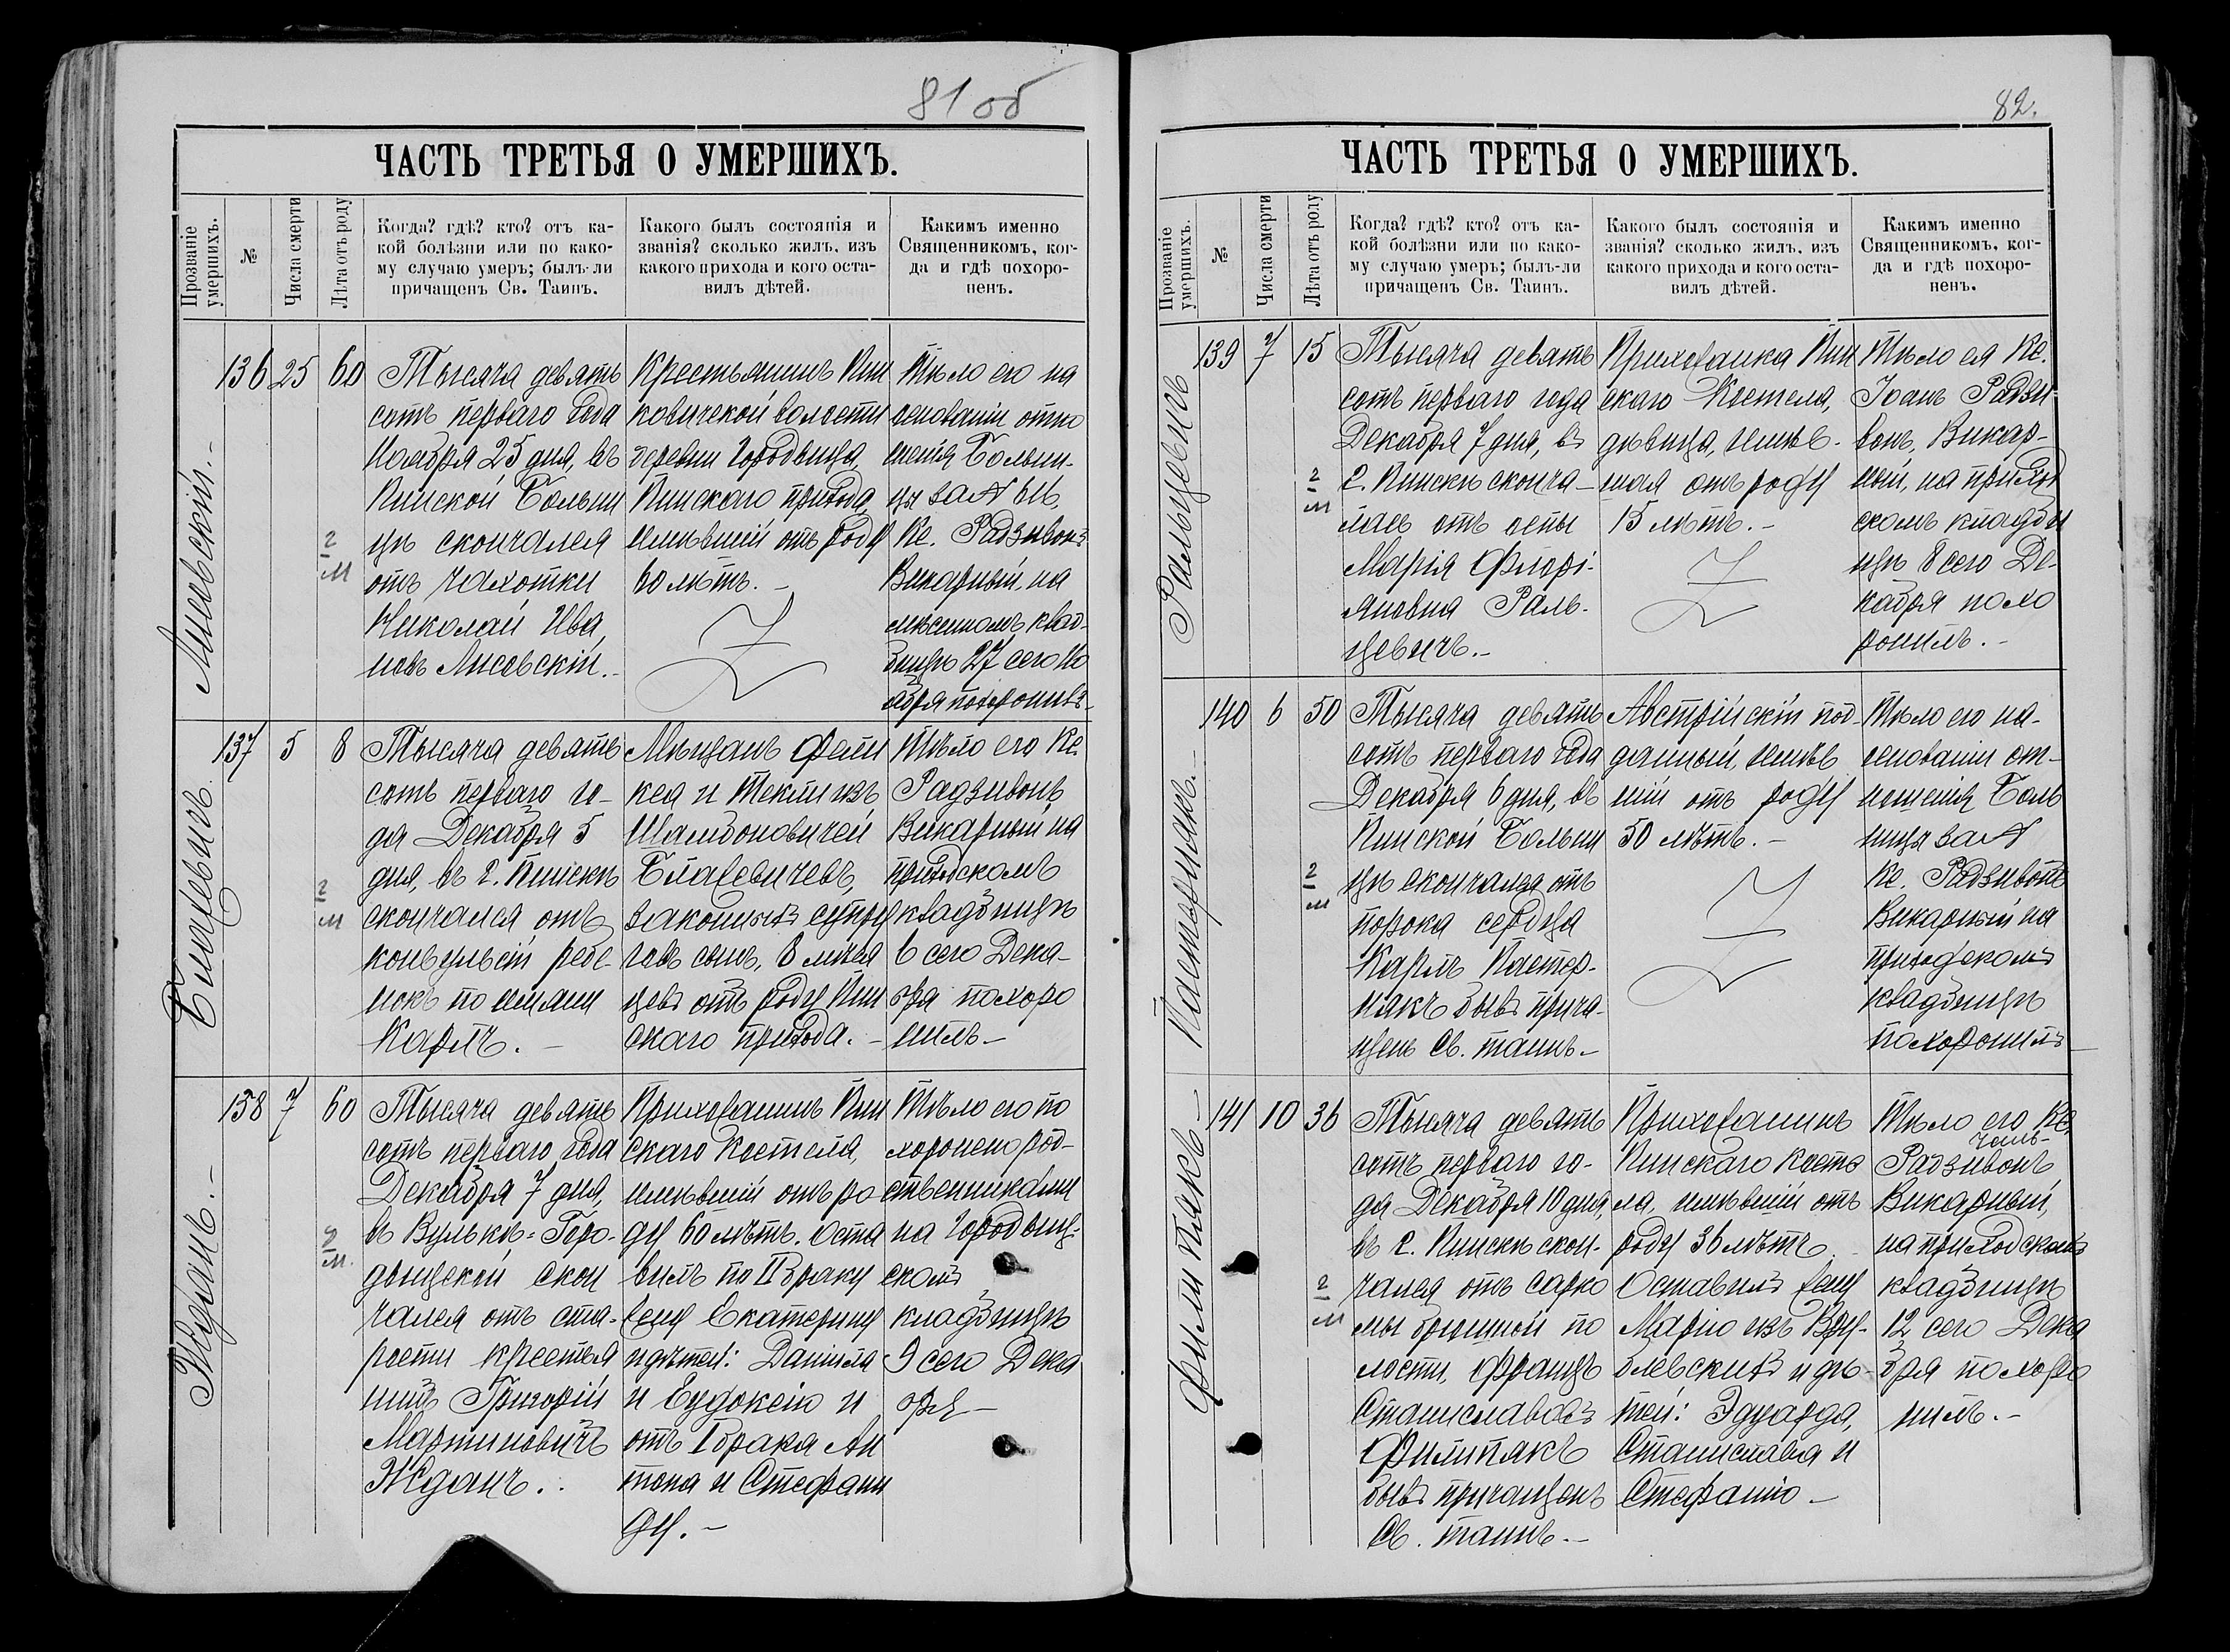 81 об
ЧАСТЬ ТРЕТЬЯ О УМЕРШИХЪ.
Прозваніе умершихъ.
№
Числа смерти
Лѣта отъ роду
Когда? гдѣ? кто? отъ ка-
кой болѣзни или по како-
му случаю умеръ; былъ-ли
причащенъ Св. Таинъ.
Какого былъ состоянія и
званія? сколько жилъ, изъ
какого прихода и кого оста-
вилъ дѣтей.
Какимъ именно
Священникомъ, ког-
да и гдѣ похоро-
ненъ.
Лисовскій.-
136
25
60
Тысяча девять
сотъ перваго года
Ноября 25 дня, въ
Пинской Больни
цѣ скончался
отъ чахотки
Николай Ива,
новъ Лисовскій.-
Крестьянинъ Пин
ковичской волости
деревни Городыща,
Пинскаго прихода,
имѣвшій отъ роду
60 лѣтъ.-
Тѣло его на
основаніи отно
шенія Больни-
цы за №
Кс. Радзивонъ
Викарный, на
мѣстномъ клад-
бищѣ 27 сего Но
ября похоронивъ-
Блажевичъ
137
5
8
Тысяча девять
сотъ перваго го-
да Декабря 5
дня, въ г. Пинскѣ
скончался отъ
конвульсій ребе-
нокъ по имени
Карлъ.-
Мѣщанъ Фели
кса и Текли изъ
Блажевичевъ,
законныхъ супру
говъ сынъ, 8 мѣся
цевъ отъ роду Пин
скаго прихода.-
Тѣло его Кс.
Радзивонъ
Викарный на
приходскомъ
кладбищѣ
6 сего Дека-
бря похоро
нилъ-
Жданъ.-
138
7
60
Тысяча девять
сотъ перваго года
Декабря 7 дня,
въ Вулькѣ-Горо-
дыщской скон
чался отъ ста-
рости крестья
нинъ Григорій
Мартиновичъ
Жданъ.
Прихожанинъ Пин
скаго Костела,
имѣвшій отъ ро
ду 60 лѣтъ. Оста
вилъ по II браку
жену Екатерину
и дѣтей: Даніила
и Евдоксію и
отъ I брака Ан
тона и Стефани
ду.-
Тѣло его по
хоронено род-
ственниками
на Городыщ-
скомъ
кладбищѣ
9 сего Дека
бря-
82.
ЧАСТЬ ТРЕТЬЯ О УМЕРШИХЪ.
Прозваніе умершихъ.
№
Числа смерти
Лѣта отъ роду
Когда? гдѣ? кто? отъ ка-
кой болѣзни или по како-
му случаю умеръ; былъ-ли
причащенъ Св. Таинъ.
Какого былъ состоянія и
званія? сколько жилъ, изъ
какого прихода и кого оста-
вилъ дѣтей.
Какимъ именно
Священникомъ, ког-
да и гдѣ похоро-
ненъ.
Ральцевичъ
139
7
15
Тысяча девять
сотъ перваго года
Декабря 7 дня, въ
г. Пинскѣ сконча-
лась отъ оспы
Марія Флорі-
яновна Раль-
цевичъ.-
Прихожанка Пин
скаго Костела,
дѣвица, имѣв-
шая отъ роду
15 лѣтъ.-
Тѣло ея Кс.
Іоанъ Радзи-
вонъ, Викар-
ный, на приход
скомъ кладби
щѣ 8 сего Де-
кабря похо
ронилъ.-
Пастернакъ.-
140
6
50
Тысяча девять
сотъ перваго года
Декабря 6 дня, въ
Пинской Больни
цѣ скончался отъ
порока сердца
Карлъ Пастер-
накъ бывъ прича-
щенъ Св. таинъ-
Австрійскій под-
данный, имѣв
шій отъ роду
50 лѣтъ.-
Тѣло его на-
основаніи от-
ношенія Боль
ницы за №
Кс. Радзивонъ
Викарный на
приходскомъ
кладбищѣ
похоронилъ-
Филипякъ-
141
10
36
Тысяча девять
сотъ перваго го-
да Декабря 10 дня,
въ г. Пинскѣ скон-
чался отъ сарко
мы брюшной по
лости, Францъ
Станиславовъ
Филипякъ
бывъ причащенъ
Св. таинъ.-
Прихожанинъ
Пинскаго Косте
ла, имѣвшій отъ
роду 36 лѣтъ.
Оставилъ жену
Марію изъ Вру-
блевскихъ и дѣ-
тей: Эдуарда,
Станислава и
Стефанію-
Тѣло его Кс.
Радзивонъ
Викарный,
на приходскомъ
кладбищѣ
12 сего Дека
бря похоро
нилъ.-